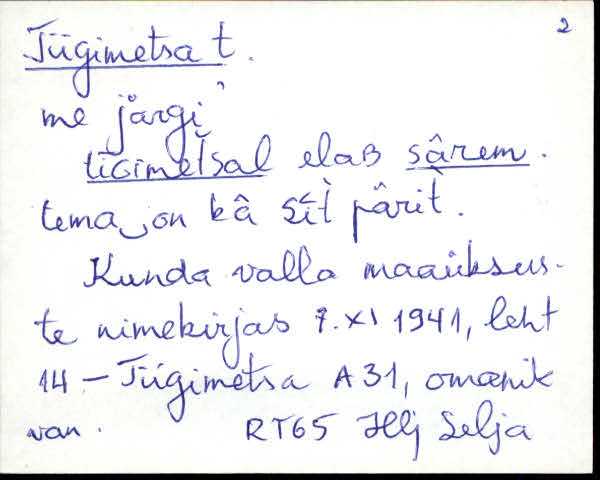 2
Tiigimetsa t.
me järgi
tiGimet̀sal elaʙ sârem.
tema‿on kâ sìt̀ pârit̀.
Kunda valla maaüksus-
te nimekirjas 7. XI 1941, leht
14 – Tiigimetsa A31, omanik
van. RT65 Hlj Selja